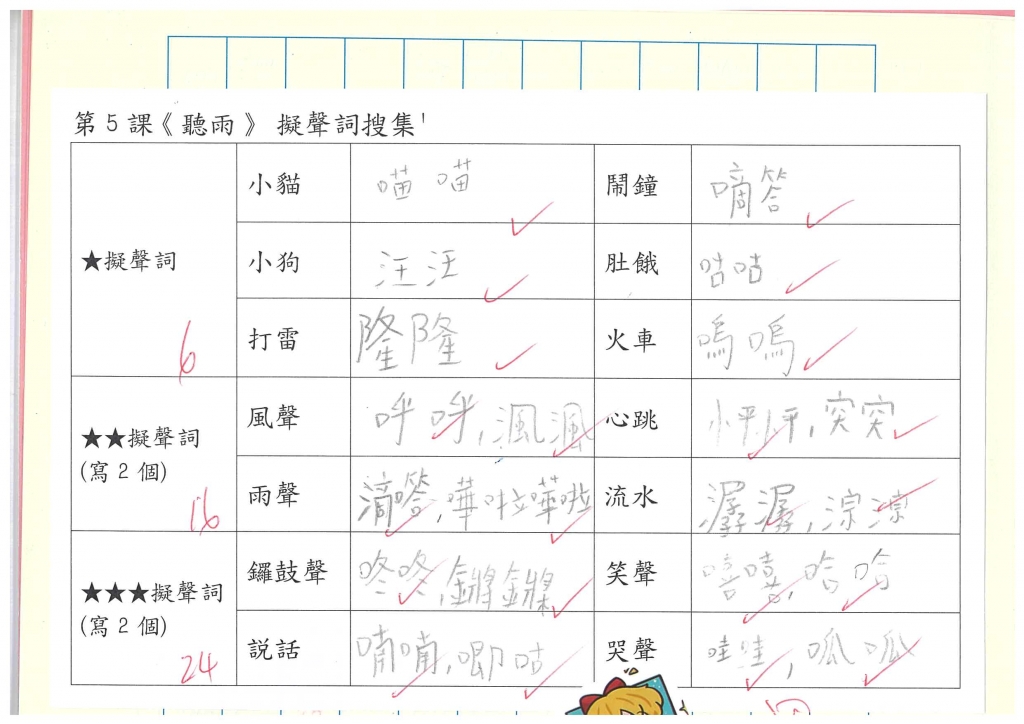 第5課《聽雨》 擬聲詞搜集
★擬聲詞
6
小貓 喵喵 鬧鐘 嘀答
小狗 汪汪 肚餓 咕咕
打雷 隆隆 火車 嗚嗚
★★擬聲詞
(寫2個)
16
風聲 呼呼,渢渢 心跳 怦怦,突突
雨聲 滴嗒,嘩啦嘩啦 流水 潺潺,淙淙
★★★擬聲詞
(寫2個)
24
鑼鼓聲 咚咚,鏘鏘 笑聲 嘻嘻,哈哈
説話 喃喃,唧咕 哭聲 哇哇,呱呱